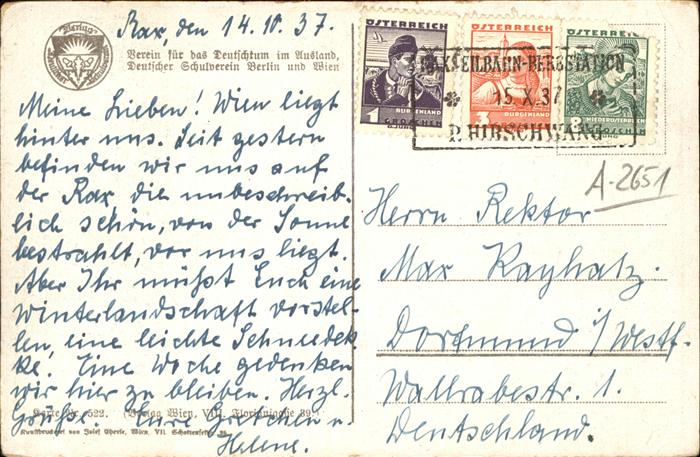 Rax, den 14.10.37.
Verein für das Deutschtum im Ausland,
Deutscher Schulverein Berlin und Wien
Meine Lieben! Wien liegt
hinter uns. Seit gestern
befinden wir uns auf
der Rax die unbeschreib-
lich schön, von der Sonne
bestrahlt, vor uns liegt.
Aber Ihr müßt Euch eine
Winterlandschaft vorstel-
len, eine leichte Schneedek-
ke. Eine Woche gedenken
wir hier zu bleiben. Herzl.
Grüße. Eure Gretchen u.
Helene.
Karte Nr. 522. (Verlag Wien, VIII. Florianigasse 39.)
Kunstdruckerei von Josef Eberle, Wien, VII. Schottenfeldg.
ÖSTERREICH
1
BURGENLAND
GROSCHEN
ÖSTERREICH
3
BURGENLAND
GROSCHEN
ÖSTERREICH
8
NIEDERÖSTERREICH
GROSCHEN
RAXSEILBAHN-BERGSTATION
15.X.37
P. HIRSCHWANG
A-2651
Herrn Rektor
Max Kayhatz.
Dortmund i/Westf.
Wallrabestr. 1.
Deutschland.